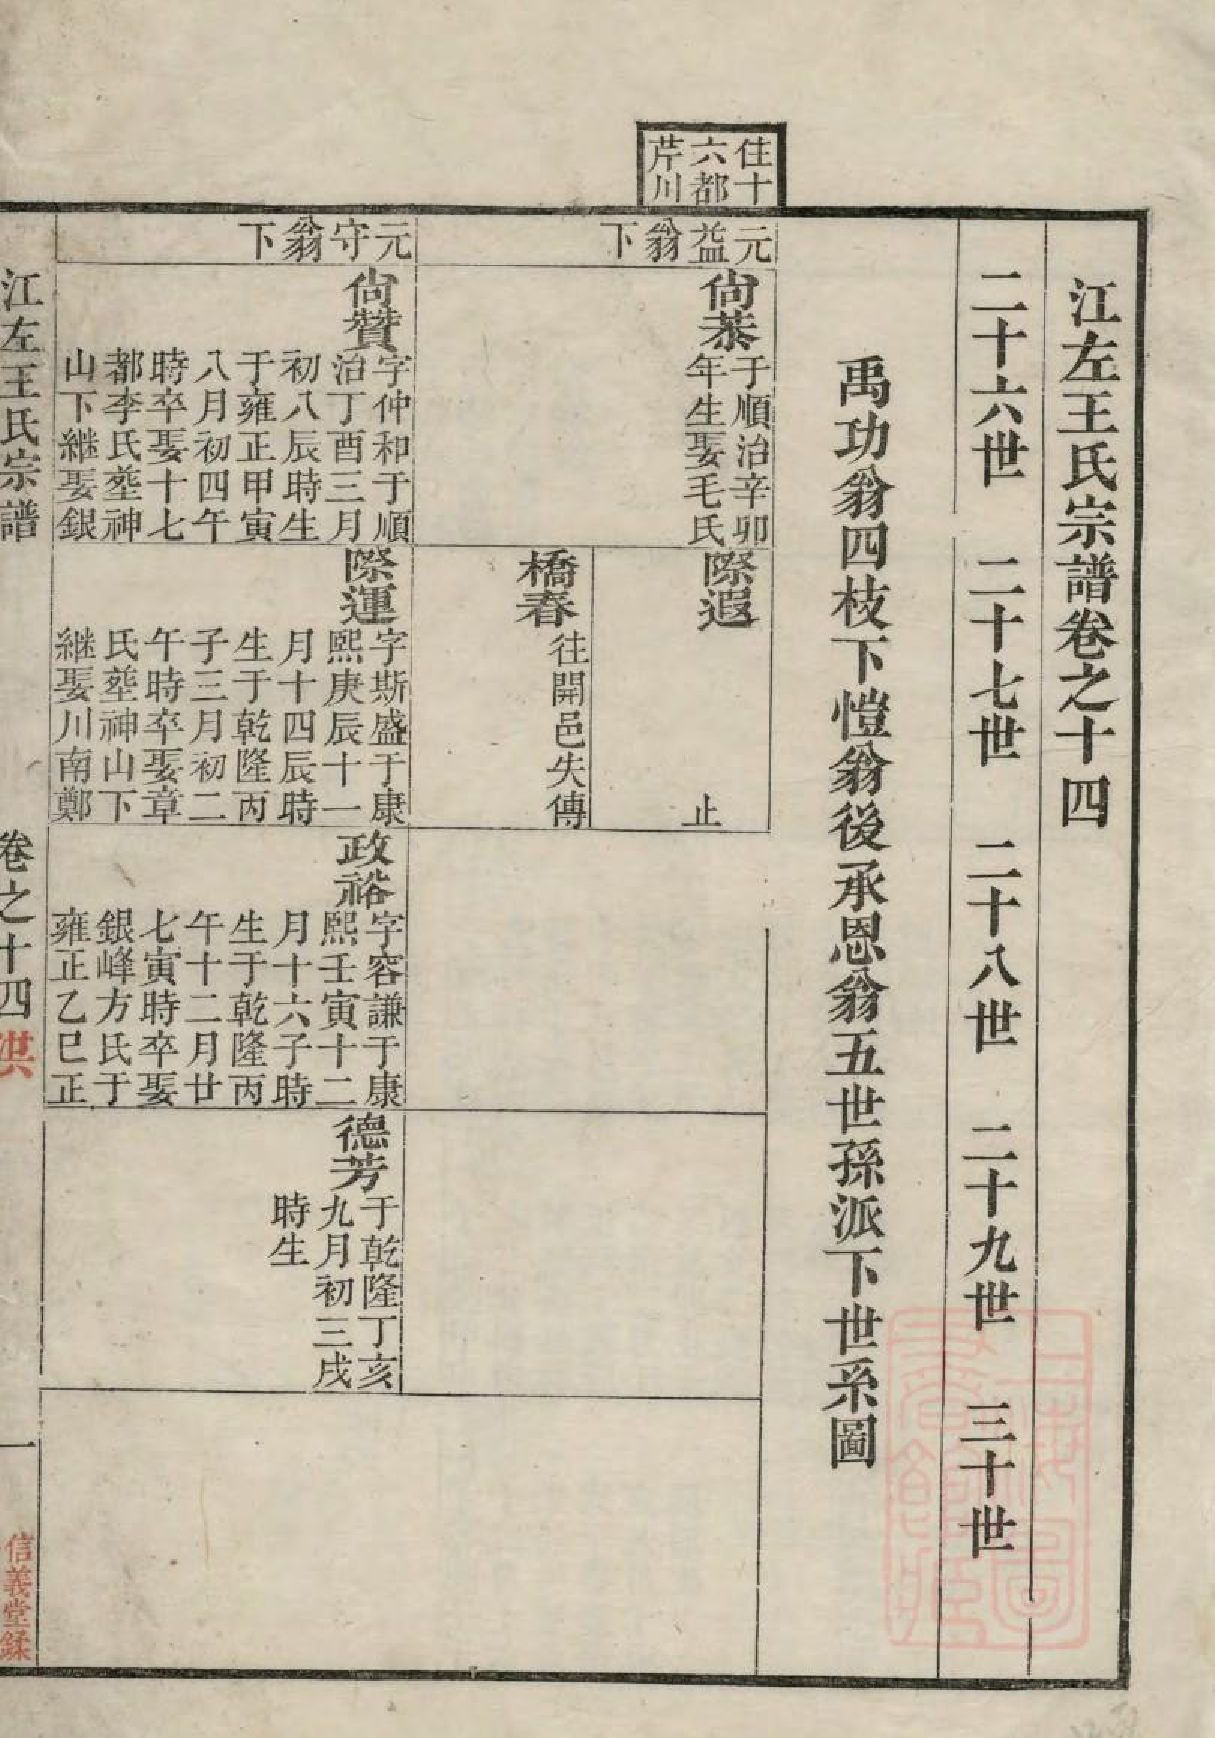 江左王氏宗譜卷之十四
二十六世 二十七世 二十八世 二十九世 三十世
禹功翁四枝下愷翁後承恩翁五世孫派下世系圖
住十
六都
芹川
元益翁下
尙恭
于順治辛卯
年生娶毛氏
際遐
止
橋春
往開邑失傳
元守翁下
尙贊
字仲和于順
治丁酉三月
初八辰時生
于雍正甲寅
八月初四午
時卒娶十七
都李氏塟神
山下継娶銀
際運
字斯盛于康
熙庚辰十一
月十四辰時
生于乾隆丙
子三月初二
午時卒娶章
氏塟神山下
継娶川南鄭
政裕
字容謙于康
熙壬寅十二
月十六子時
生于乾隆丙
午十二月廿
七寅時卒娶
銀峰方氏于
雍正乙巳正
德芳
于乾隆丁亥
九月初三戌
時生
江左王氏宗譜
卷之十四
洪
一
信義堂鍒